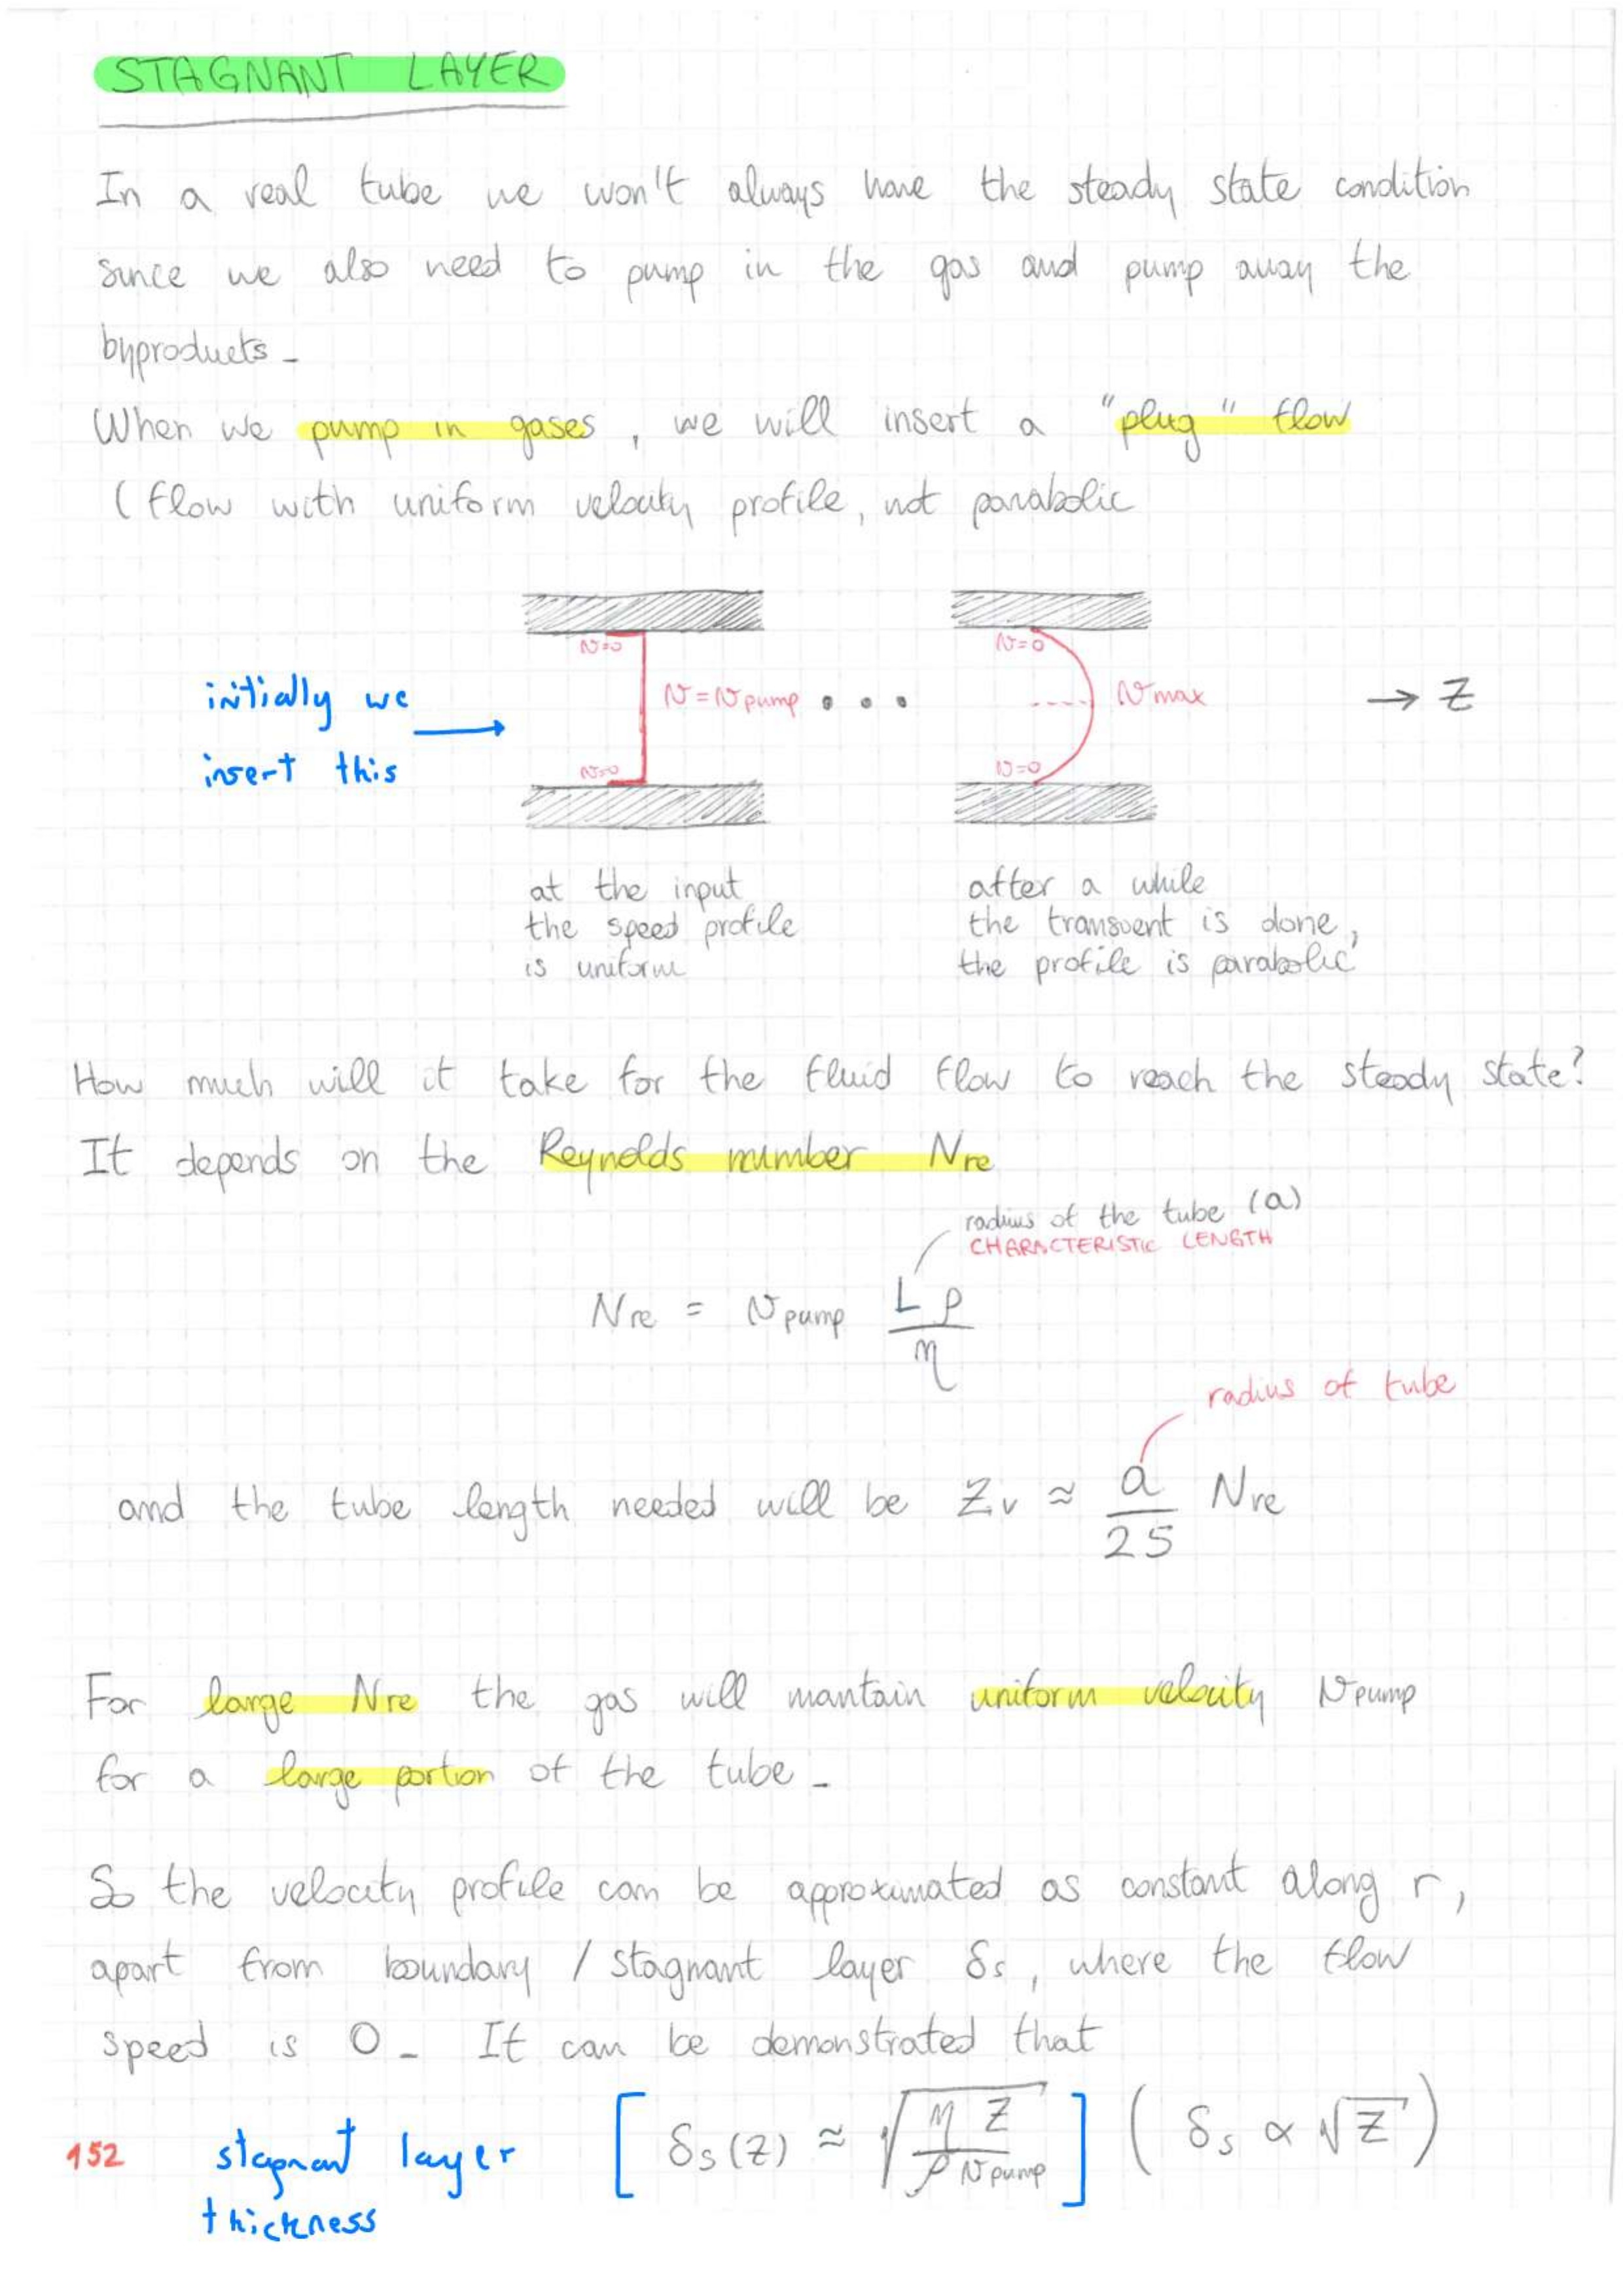 STAGNANT LAYER
In a real tube we won't always have the steady state condition
since we also need to pump in the gas and pump away the
byproducts -
When we pump in gases, we will insert a "plug" flow
(flow with uniform velocity profile, not parabolic
v=0
v=0
initially we
insert this
v=vpump
vmax
→ z
v=0
v=0
at the input
the speed profile
is uniform
after a while
the transient is done,
the profile is parabolic
How much will it take for the fluid flow to reach the steady state?
It depends on the Reynolds number Nre
radius of the tube (a)
CHARACTERISTIC LENGTH
Nre = vpump Lρ/η
radius of tube
and the tube length needed will be Zv ≈ a/25 Nre
For large Nre the gas will mantain uniform velocity vpump
for a large portion of the tube -
So the velocity profile can be approximated as constant along r,
apart from boundary / stagnant layer δs, where the flow
speed is 0 - It can be demonstrated that
152 stagnant layer [δs(z) ≈ √(ηz/ρvpump)] (δs ∝ √z)
thickness